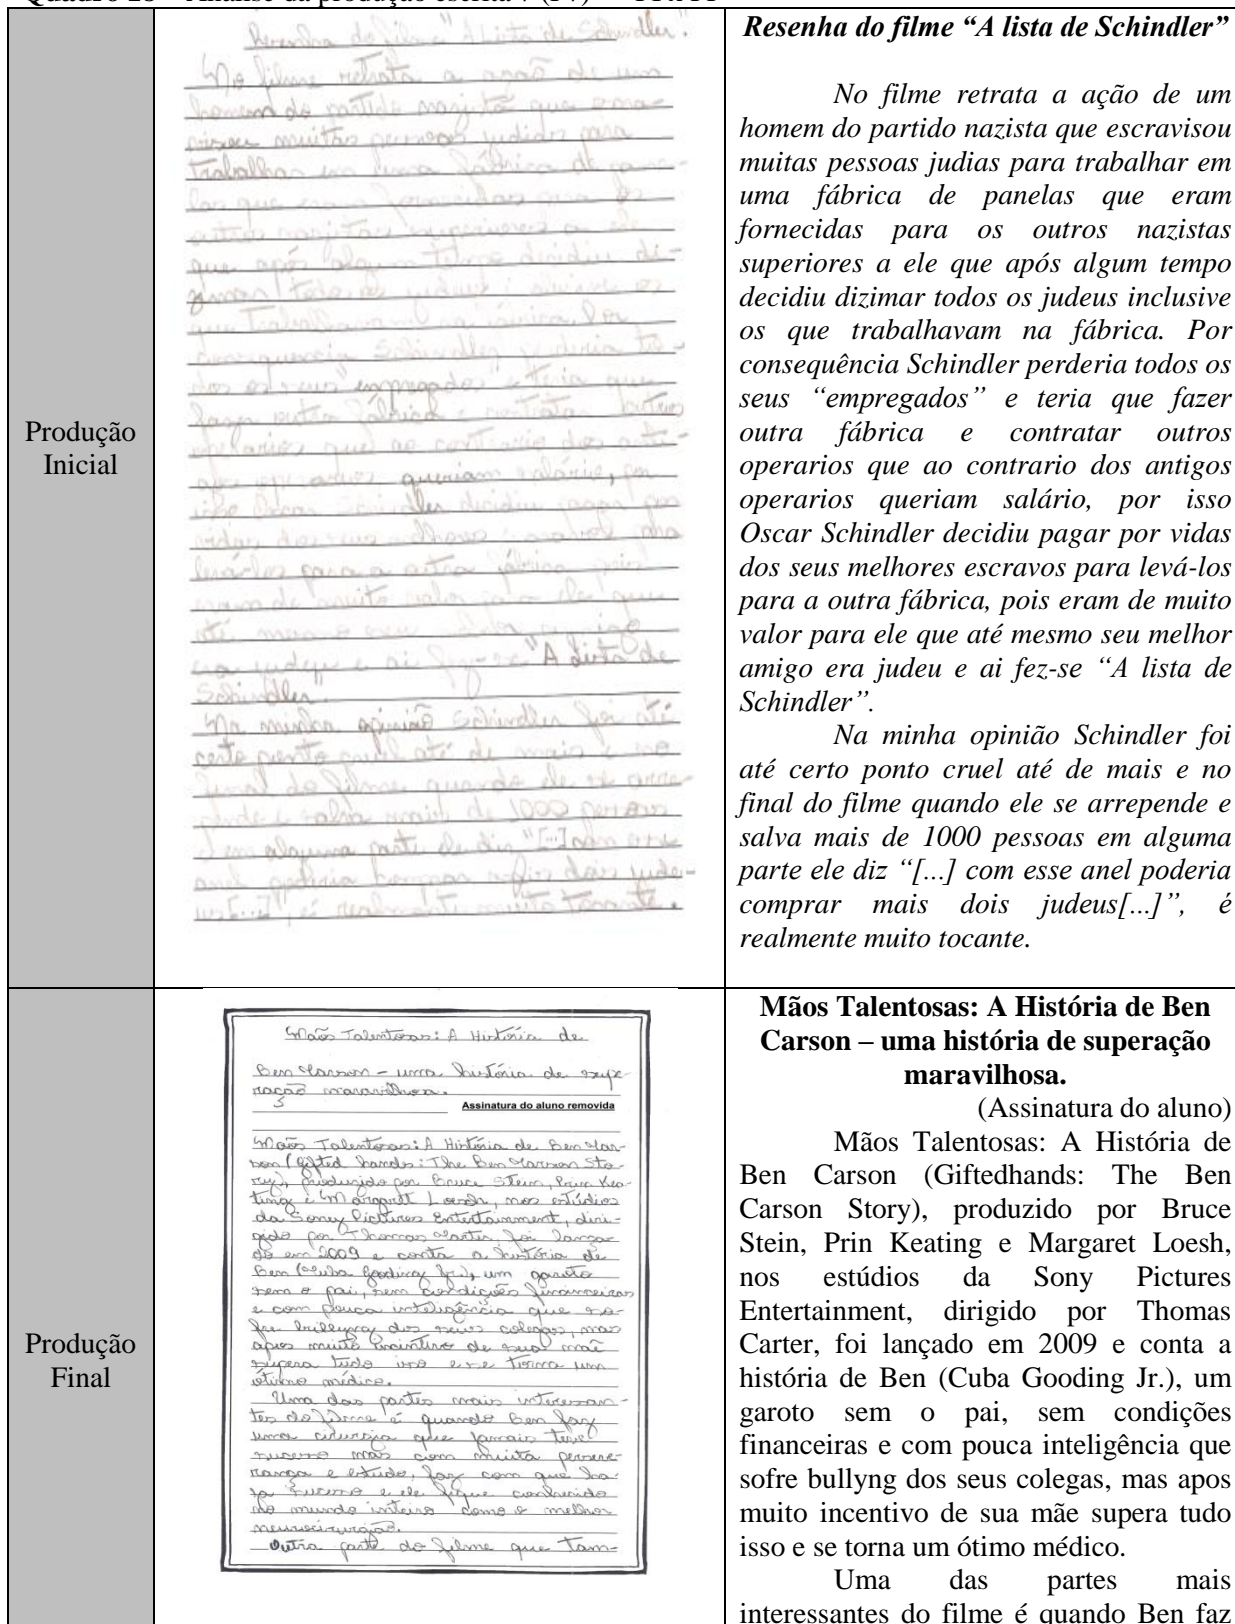 Análise da produção escrita
Produção
Inicial
Resenha do filme "A Lista de Schindler".
No filme retrata a ação de um
homem do partido nazista que
muitas pessoas judias para
trabalhar em uma fábrica de pane-
las que eram fornecidas para os
outros nazistas superiores a ele
que após algum tempo decidiu di-
todos os judeus inclusive os
que trabalhavam na fábrica. Por
consequencia Schindler perderia to-
dos os seus "empregados" e teria que
fazer outra fábrica e contratar outros
operarios que ao contrario dos anti-
gos operarios queriam salário, por
isso Oscar Schindler decidiu pagar por
vidas dos seus melhores escravos para
levá-los para a outra fábrica, pois
eram de muito valor para ele que
até mesmo seu melhor amigo
era judeu e ai fez-se "A Lista de
Schindler".
Na minha opinião Schindler foi até
certo ponto cruel até de mais e no
final do filme quando ele se arre-
pende e salva mais de 1000 pessoas
em alguma parte ele diz "[...] com esse
anel poderia comprar mais dois jude-
us[...]", é realmente muito tocante.
Resenha do filme “A lista de Schindler”
No filme retrata a ação de um
homem do partido nazista que escravisou
muitas pessoas judias para trabalhar em
uma fábrica de panelas que eram
fornecidas para os outros nazistas
superiores a ele que após algum tempo
decidiu dizimar todos os judeus inclusive
os que trabalhavam na fábrica. Por
consequência Schindler perderia todos os
seus “empregados” e teria que fazer
outra fábrica e contratar outros
operarios que ao contrario dos antigos
operarios queriam salário, por isso
Oscar Schindler decidiu pagar por vidas
dos seus melhores escravos para levá-los
para a outra fábrica, pois eram de muito
valor para ele que até mesmo seu melhor
amigo era judeu e ai fez-se “A lista de
Schindler”.
Na minha opinião Schindler foi
até certo ponto cruel até de mais e no
final do filme quando ele se arrepende e
salva mais de 1000 pessoas em alguma
parte ele diz “[...] com esse anel poderia
comprar mais dois judeus[...]”, é
realmente muito tocante.
Produção
Final
Mãos Talentosas: A História de
Ben Carson – uma história de supe
ração maravilhosa.
Assinatura do aluno removida
Mãos Talentosas: A História de Ben Car-
son (Gifted hands: The Ben Carson Sto-
ry), produzido por Bruce Stein, Prin Kea-
ting e Margaret Loesh, nos estúdios
da Sony Pictures Entertainment, diri-
gido por Thomas Carter, foi lança-
do em 2009 e conta a história de
Ben (Cuba Gooding Jr.), um garoto
sem o pai, sem condições financeiras
e com pouca inteligência que so-
fre bullyng dos seus colegas, mas
apos muito incentivo de sua mãe
supera tudo isso e se torna um
ótimo médico.
Uma das partes mais interessan-
tes do filme é quando Ben faz
uma cirurgia que jamais teve
sucesso mas com muita perseve-
rança e estudo, faz com que ha-
ja sucesso e ele fique conhecido
no mundo inteiro como o melhor
neurocirurgião.
Outra parte do filme que tam-
Mãos Talentosas: A História de Ben
Carson – uma história de superação
maravilhosa.
(Assinatura do aluno)
Mãos Talentosas: A História de
Ben Carson (Giftedhands: The Ben
Carson Story), produzido por Bruce
Stein, Prin Keating e Margaret Loesh,
nos estúdios da Sony Pictures
Entertainment, dirigido por Thomas
Carter, foi lançado em 2009 e conta a
história de Ben (Cuba Gooding Jr.), um
garoto sem o pai, sem condições
financeiras e com pouca inteligência que
sofre bullyng dos seus colegas, mas apos
muito incentivo de sua mãe supera tudo
isso e se torna um ótimo médico.
Uma das partes mais
interessantes do filme é quando Ben faz